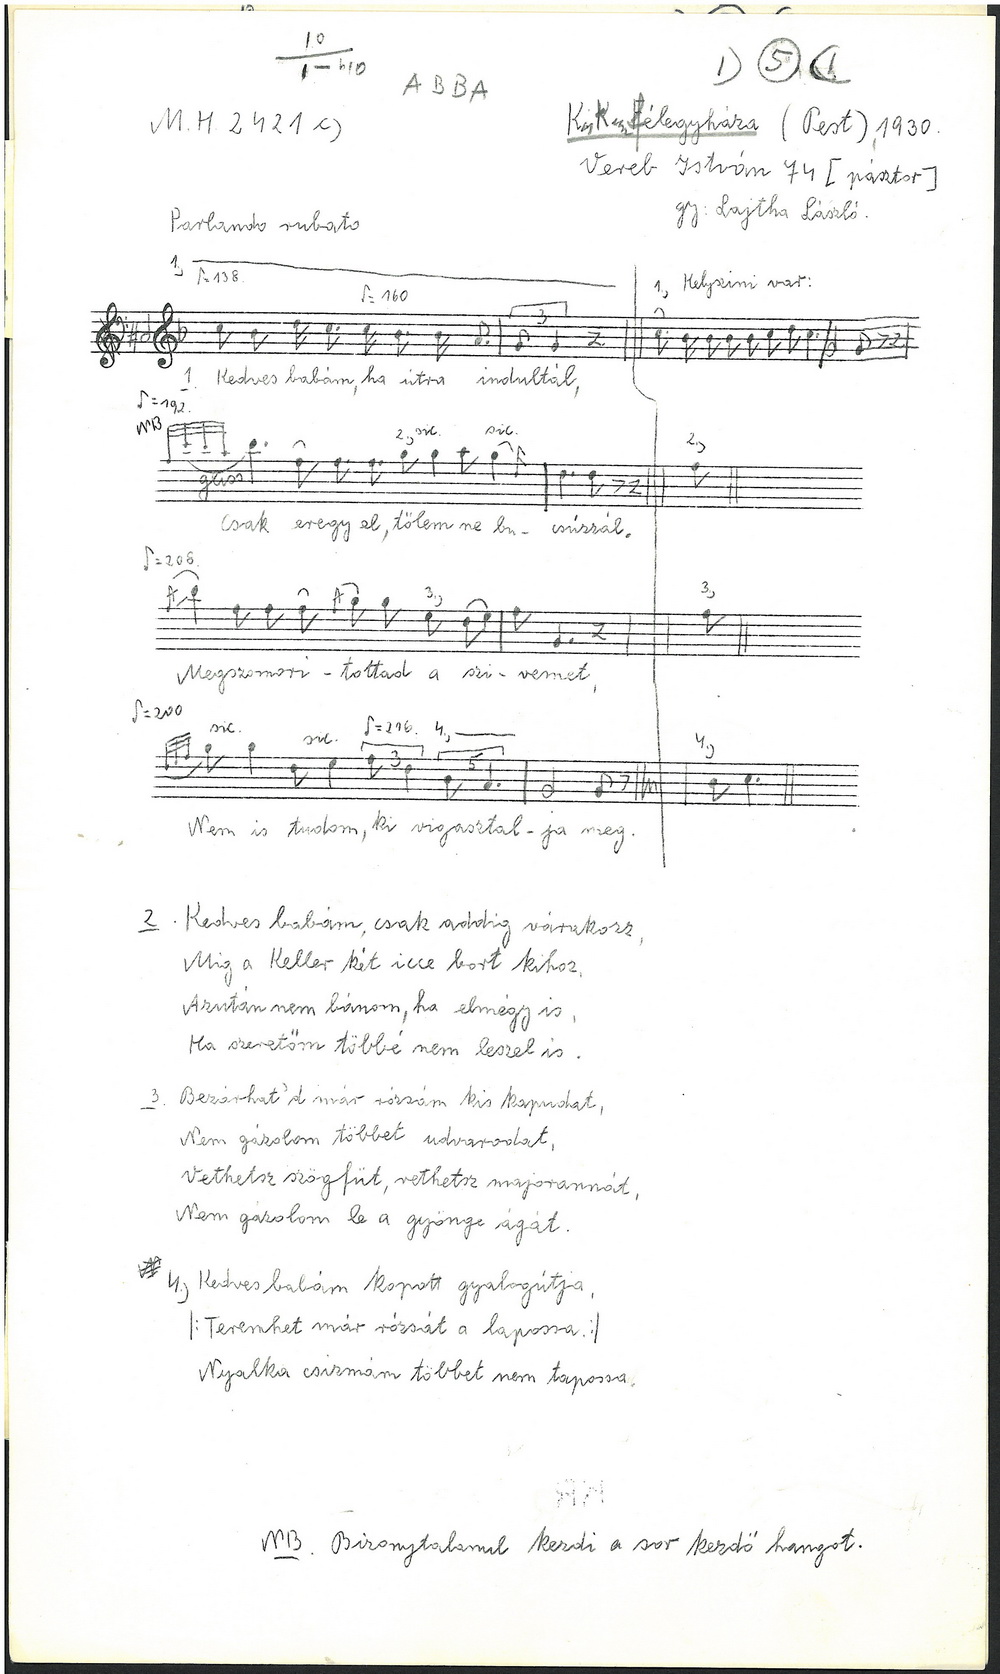 10
1-
ABBA
1) 5
M.H. 2421 c)
Kiskunfélegyháza (Pest), 1930.
Vereb István 74 [pásztor]
gy: Lajtha László.
Parlando rubato
1, ♪=138.
♪=160
1, Helyszini var:
3
1. Kedves babám, ha útra indultál,
♪=192.
NB
2, sic. sic.
2,
gliss
Csak eregy el, tőlem ne bu- csúzzál.
♪=208.
3,
3,
Megszomori - tottad a szi - vemet,
♪=200
sic. sic. ♪=216. 4,
4,
3 5
Nem is tudom, ki vigasztal - ja meg.
2. Kedves babám, csak addig várakozz,
Mig a Keller két icce bort kihoz,
Azután nem bánom, ha elmégy is,
Ha szeretőm többé nem leszel is.
3. Bezárhat'd már rózsám kis kapudat,
Nem gázolom többet udvarodat,
Vethetsz szögfüt, vethetsz majorannát,
Nem gázolom le a gyönge ágát.
4, Kedves babám kopott gyalogútja,
|: Teremhet már rózsát a lapossa. :|
Nyalka csizmám többet nem tapossa.
NB. Bizonytalanul kezdi a sor kezdő hangot.